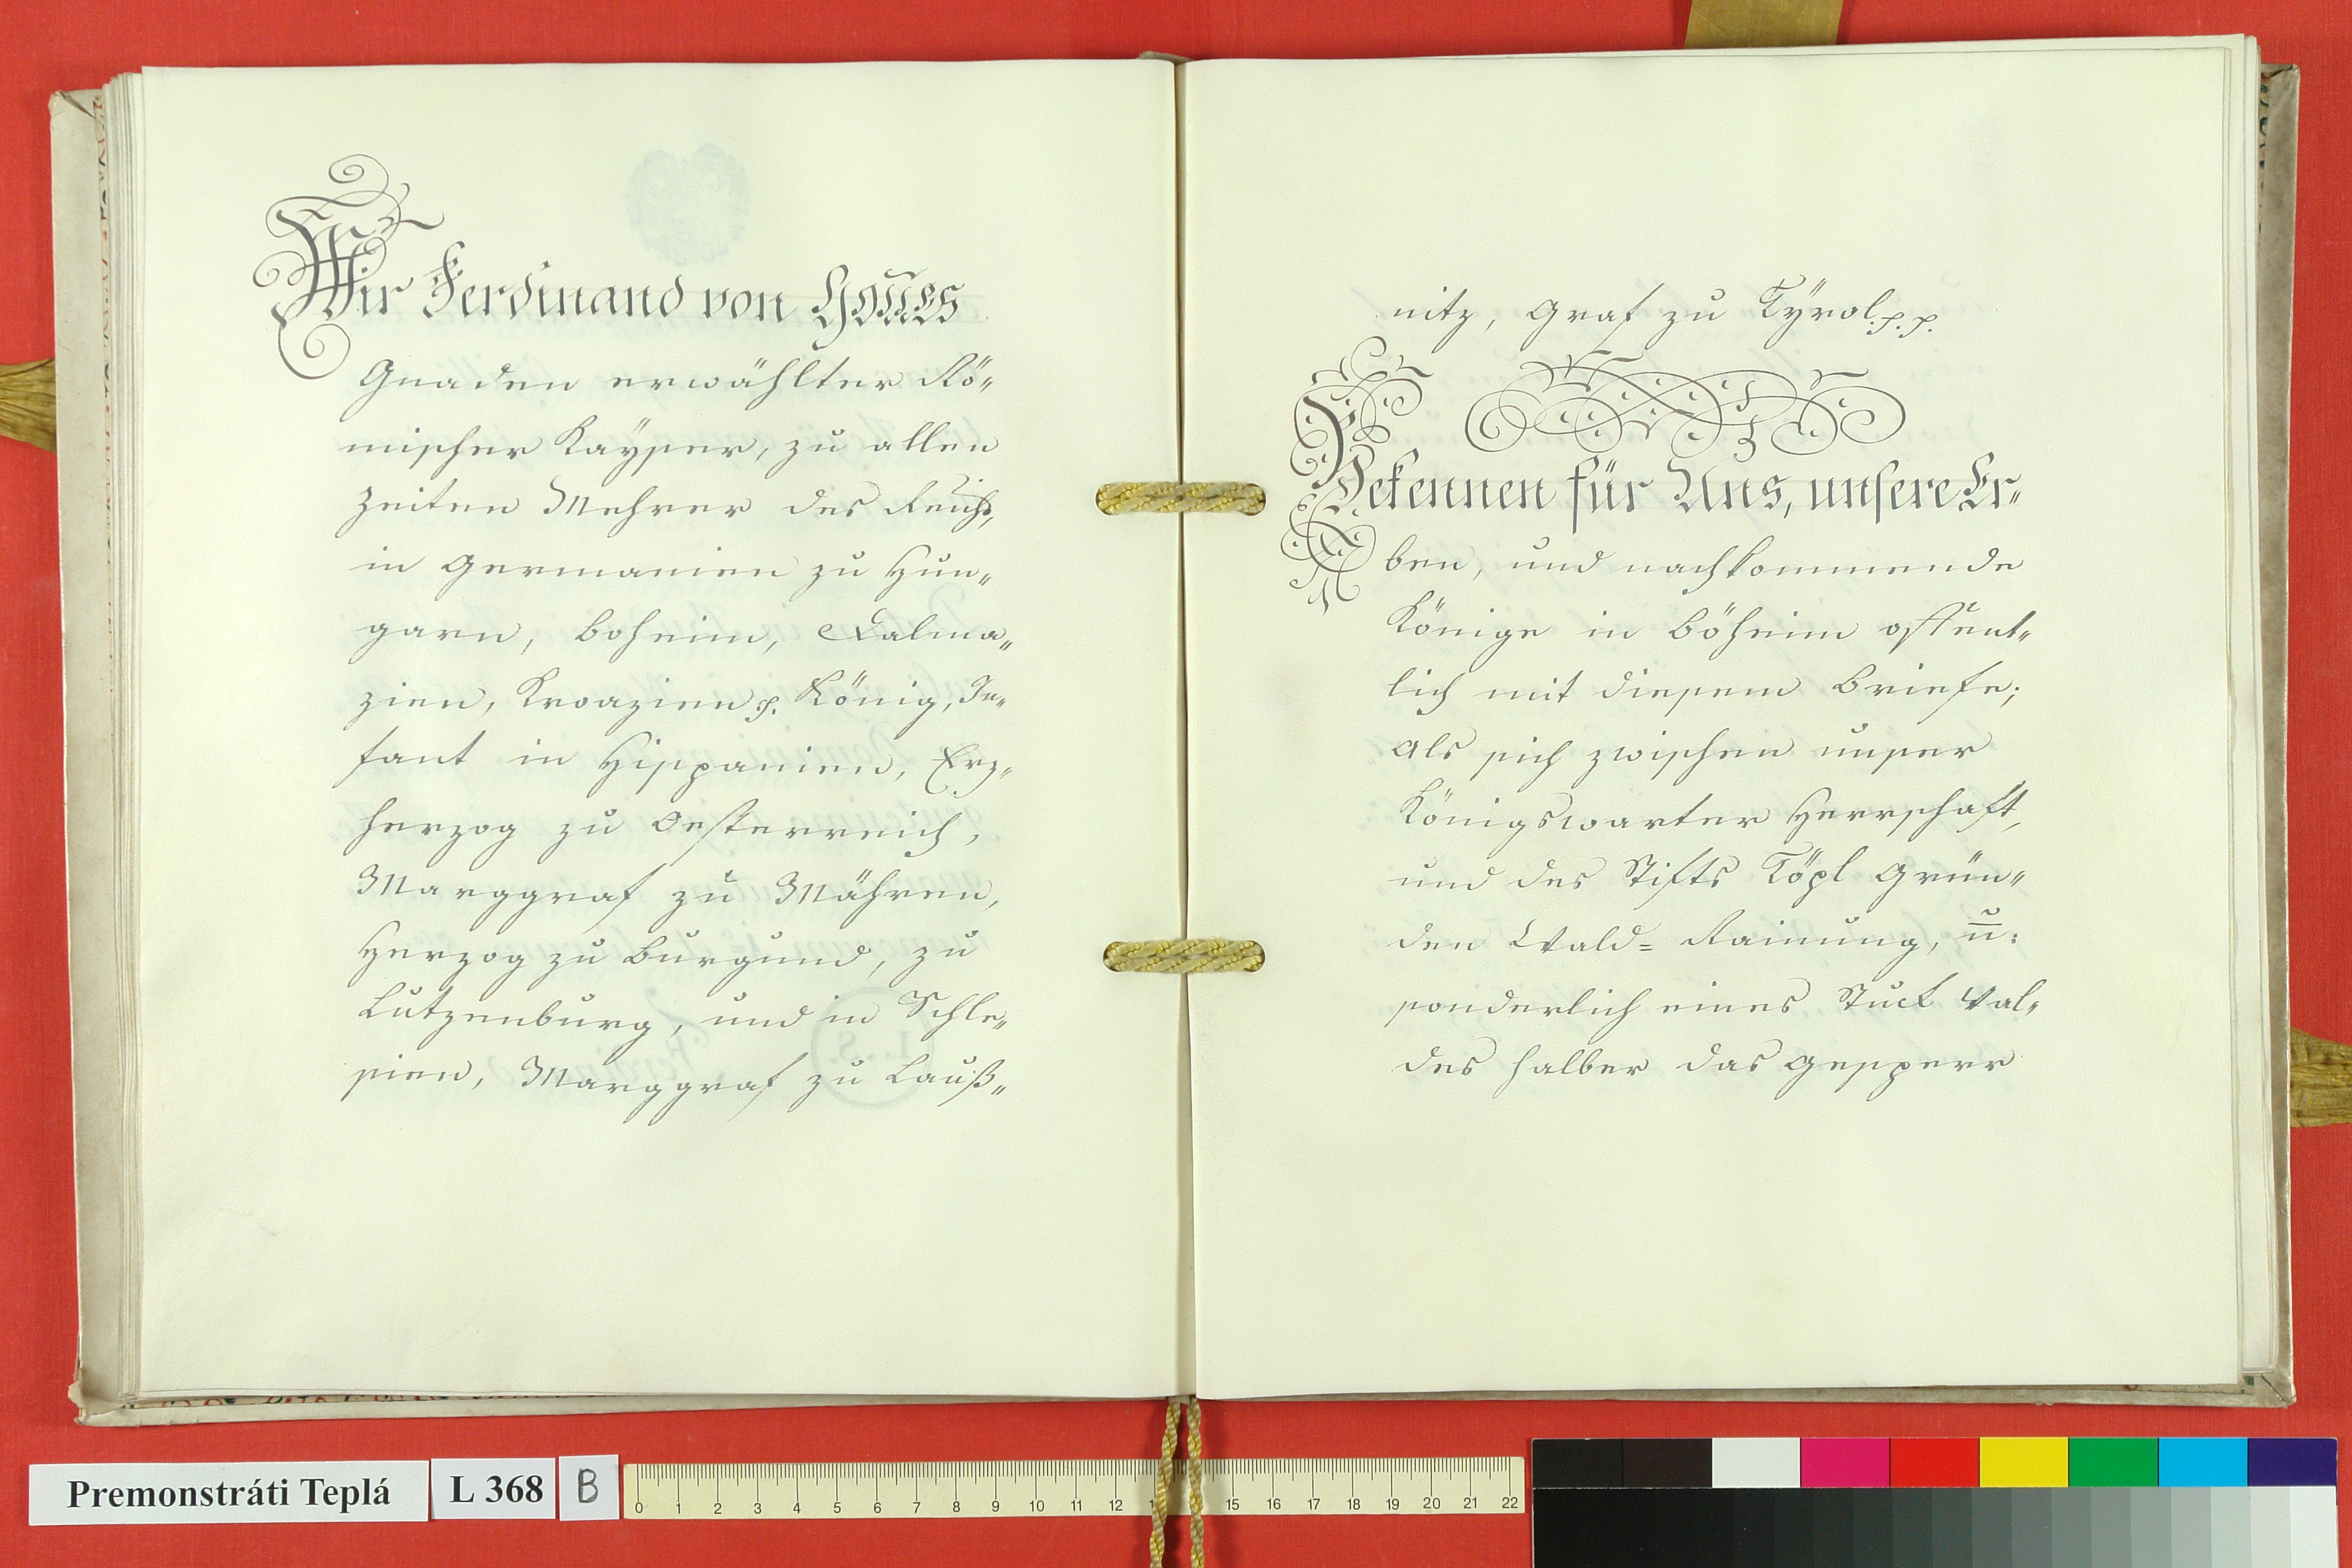 Wir Ferdinand von GOttES
Gnaden erwählter Rö„
mischer Kayser, zu allen
Zeiten Mehrer des Reichs,
in Germanien zu Hun„
garn, Boheim, Dalma„
zien, Kroazien p. König, In„
fant in Hispanien, Erz„
herzog zu Oesterreich,
Marggraf zu Mähren,
Herzog zu Burgund, zu
Lutzenburg, und in Schle„
sien, Marggraf zu Lauß„
nitz, Graf zu Tÿrol. p. p.
Bekennen für Uns, unsere Er„
ben, und nachkommende
Könige in Böheim offent„
lich mit diesem Briefe;
Als sich zwischen unser
Königswarter Herrschaft,
und des Stifts Töpl Grün„
den Wald= Rainung, u:
sonderlich eines Stuck Wal„
des halber das Gesperr
Premonstráti Teplá L 368 B
0 1 2 3 4 5 6 7 8 9 10 11 12 15 16 17 18 19 20 21 22